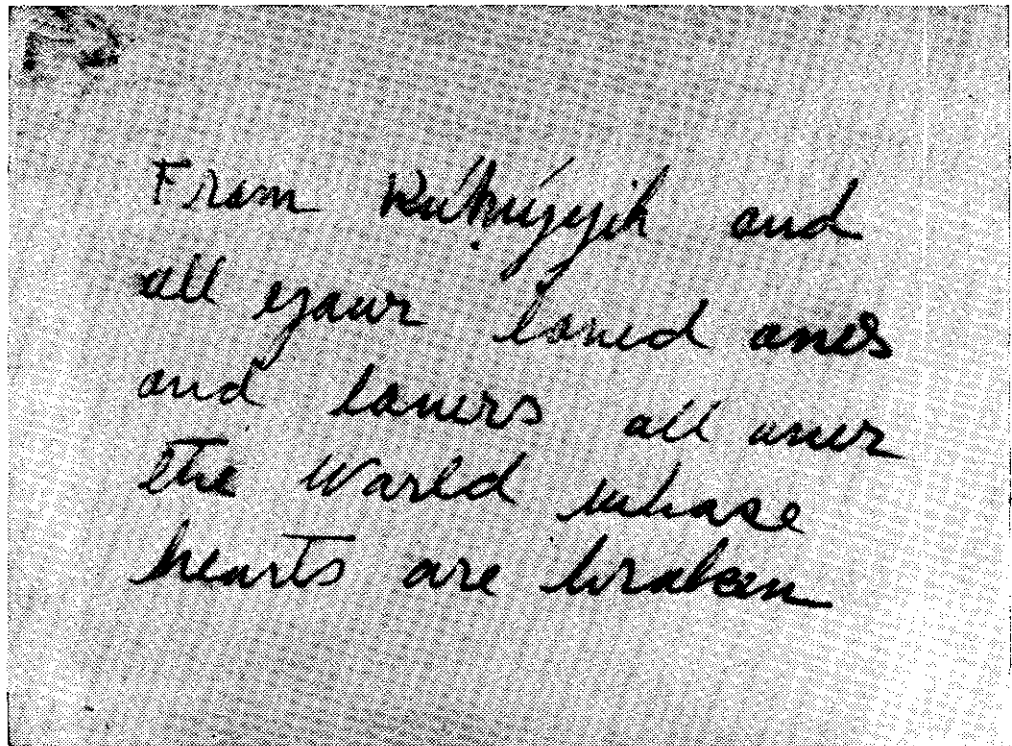 From Rúhíyyih and
all your loved ones
and lovers all over
the world whose
hearts are broken